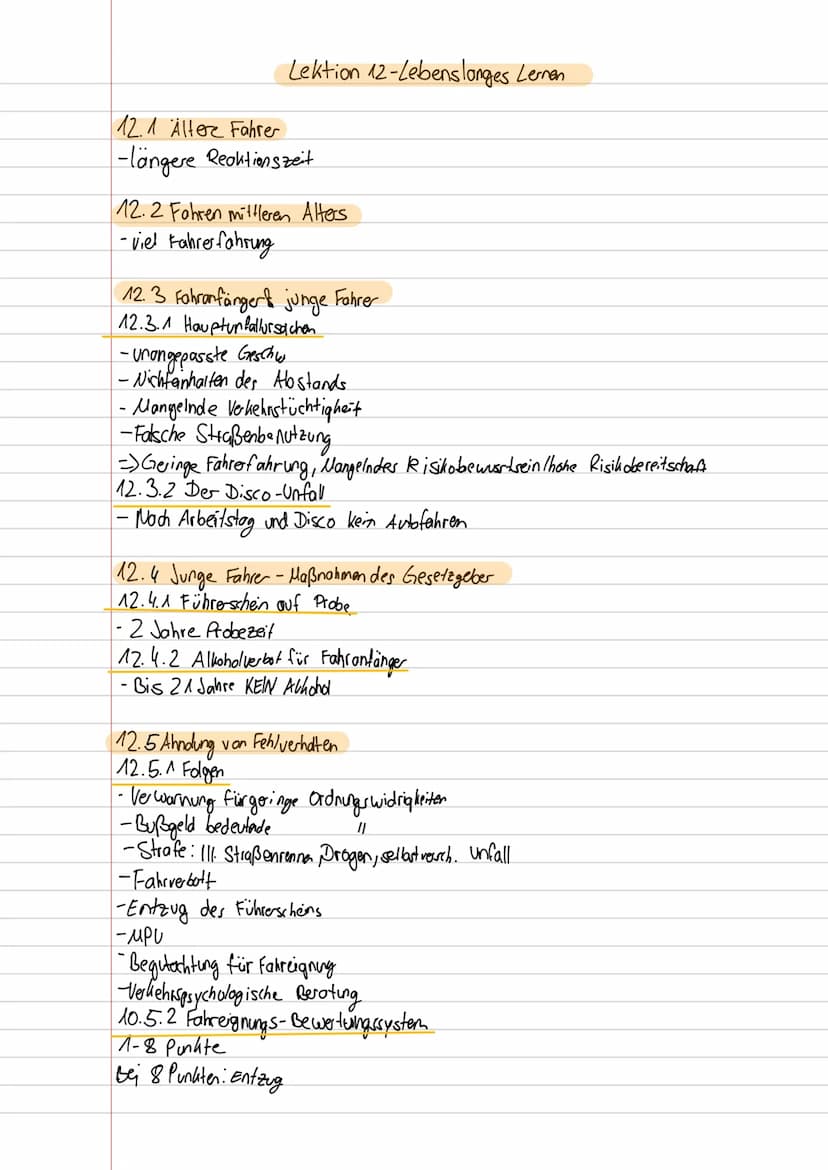 Lektion 12-Lebenslanges Lernen
12.1 Ältere Fahrer
-längere Reaktionszeit
12.2 Fahren mittleren Alters
- viel Fahrerfahrung
12.3 Fahranfänger & junge Fahrer
12.3.1 Hauptunfallursachen
- unangepasste Geschw
- Nichteinhalten des Abstands
- Mangelnde Verkehrstüchtigkeit
- Falsche Straßenbenutzung
=> Geringe Fahrerfahrung, Mangelndes Risikobewusstsein/hohe Risikobereitschaft
12.3.2 Der Disco-Unfall
- Nach Arbeitstag und Disco kein Autofahren
12.4 Junge Fahrer - Maßnahmen des Gesetzgeber
12.4.1 Führerschein auf Probe
- 2 Jahre Probezeit
12.4.2 Alkoholverbot für Fahranfänger
- Bis 21 Jahre KEIN Alkohol
12.5 Ahndung von Fehlverhalten
12.5.1 Folgen
- Verwarnung für geringe Ordnungswidrigkeiten
- Bußgeld bedeutade "
- Strafe: Ill. Straßenrenna, Drogen, selbstverusch. Unfall
- Fahrverbott
- Entzug des Führerscheins
- MPU
- Begutachtung für Fahreignung
- Verkehrspsychologische Beratung
10.5.2 Fahreignungs-Bewertungssystem
1-8 Punkte
bei 8 Punkten: Entzug